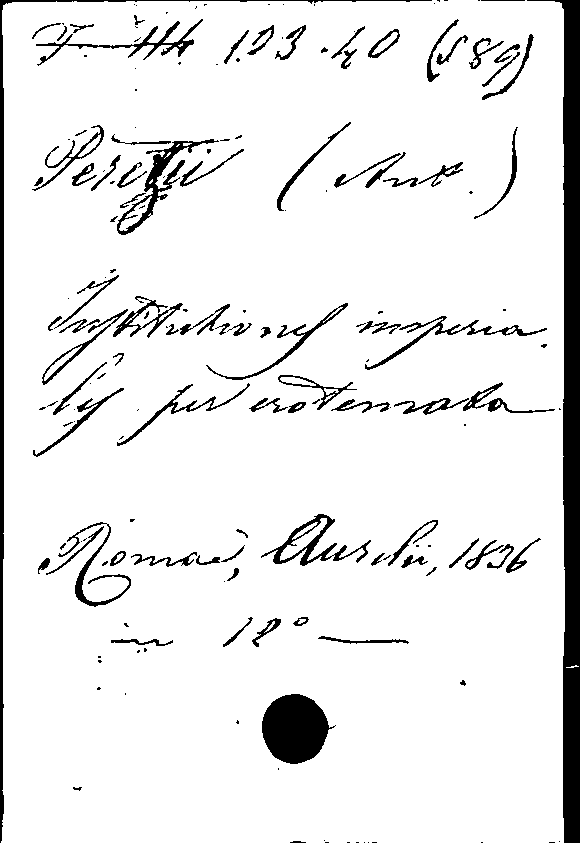 T. 114 123.40 (589)
Peretii (Ant.)
Institutiones imperia-
lis per erotemata
Romae, Aurelii, 1836
in 12º